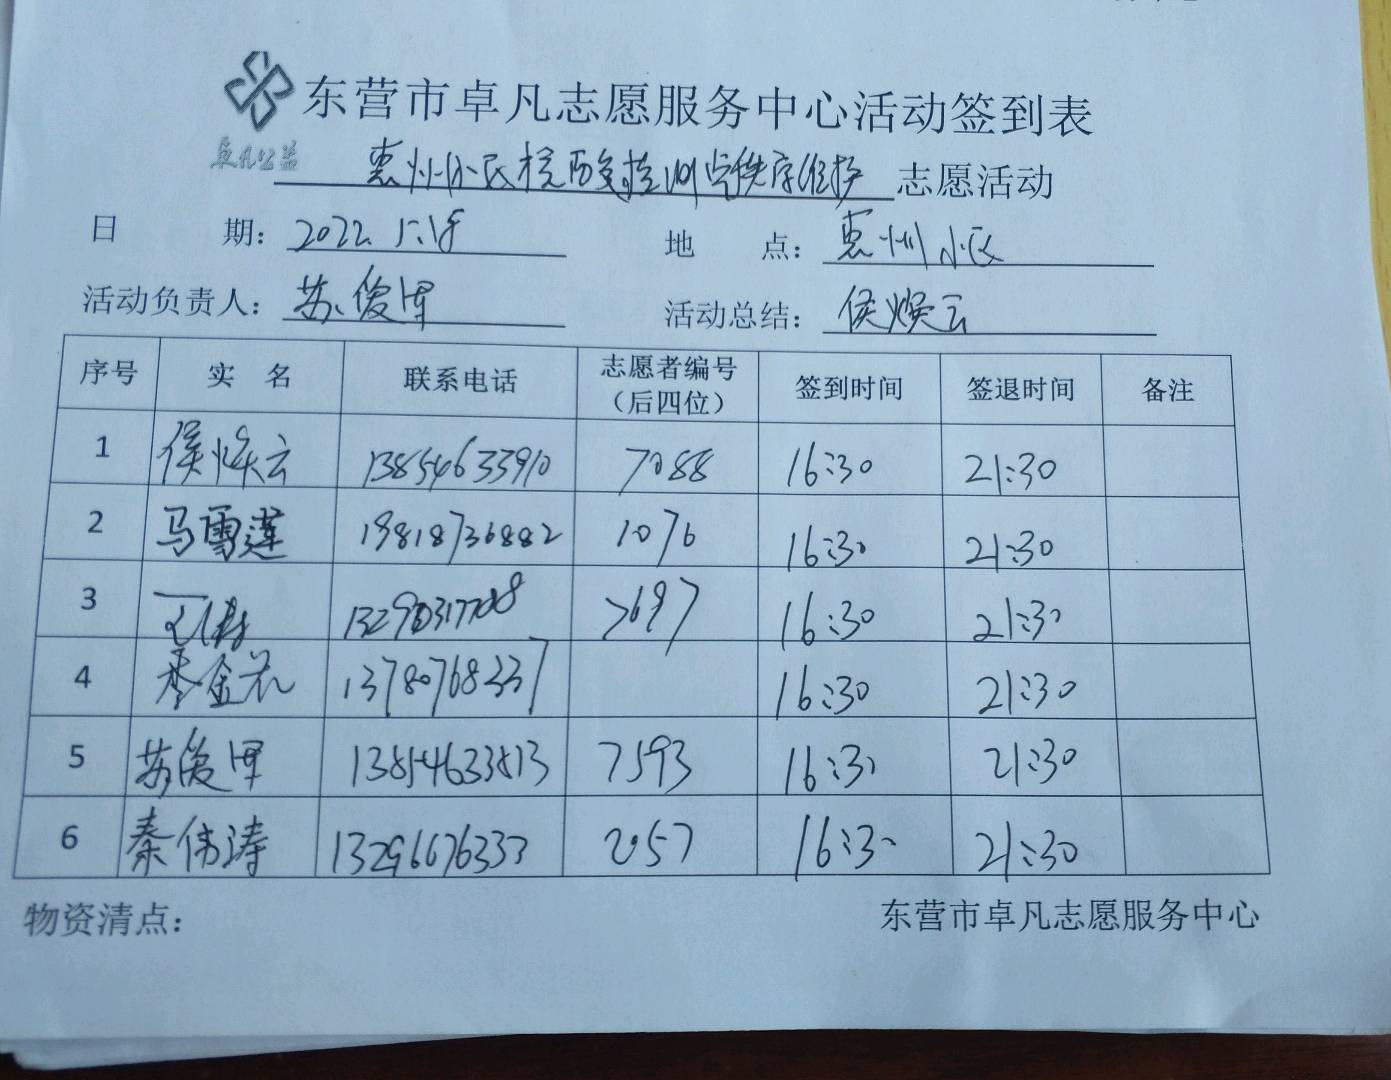 东营市卓凡志愿服务中心活动签到表
卓凡公益
惠州小区核酸检测点秩序维护 志愿活动
日 期: 2022.5.18 地 点: 惠州小区
活动负责人: 苏俊泽 活动总结: 侯焕云
序号 实 名 联系电话 志愿者编号(后四位) 签到时间 签退时间 备注
1 侯焕云 13854633910 7088 16:30 21:30
2 马雪莲 19818736882 1076 16:30 21:30
3 7697 16:30 21:30
4 李金花 13780768337 16:30 21:30
5 苏俊泽 13854633813 7593 16:30 21:30
6 秦伟涛 13296676333 2057 16:30 21:30
物资清点: 东营市卓凡志愿服务中心